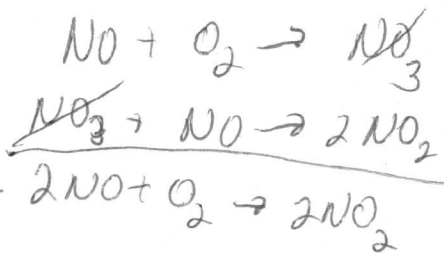 NO + O₂ → NO₃
NO₃ + NO → 2NO₂
2NO + O₂ → 2NO₂